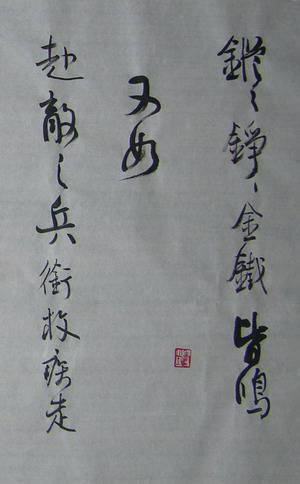 鏦々錚々金鐵皆鳴
又如
赴敵之兵銜枚疾走